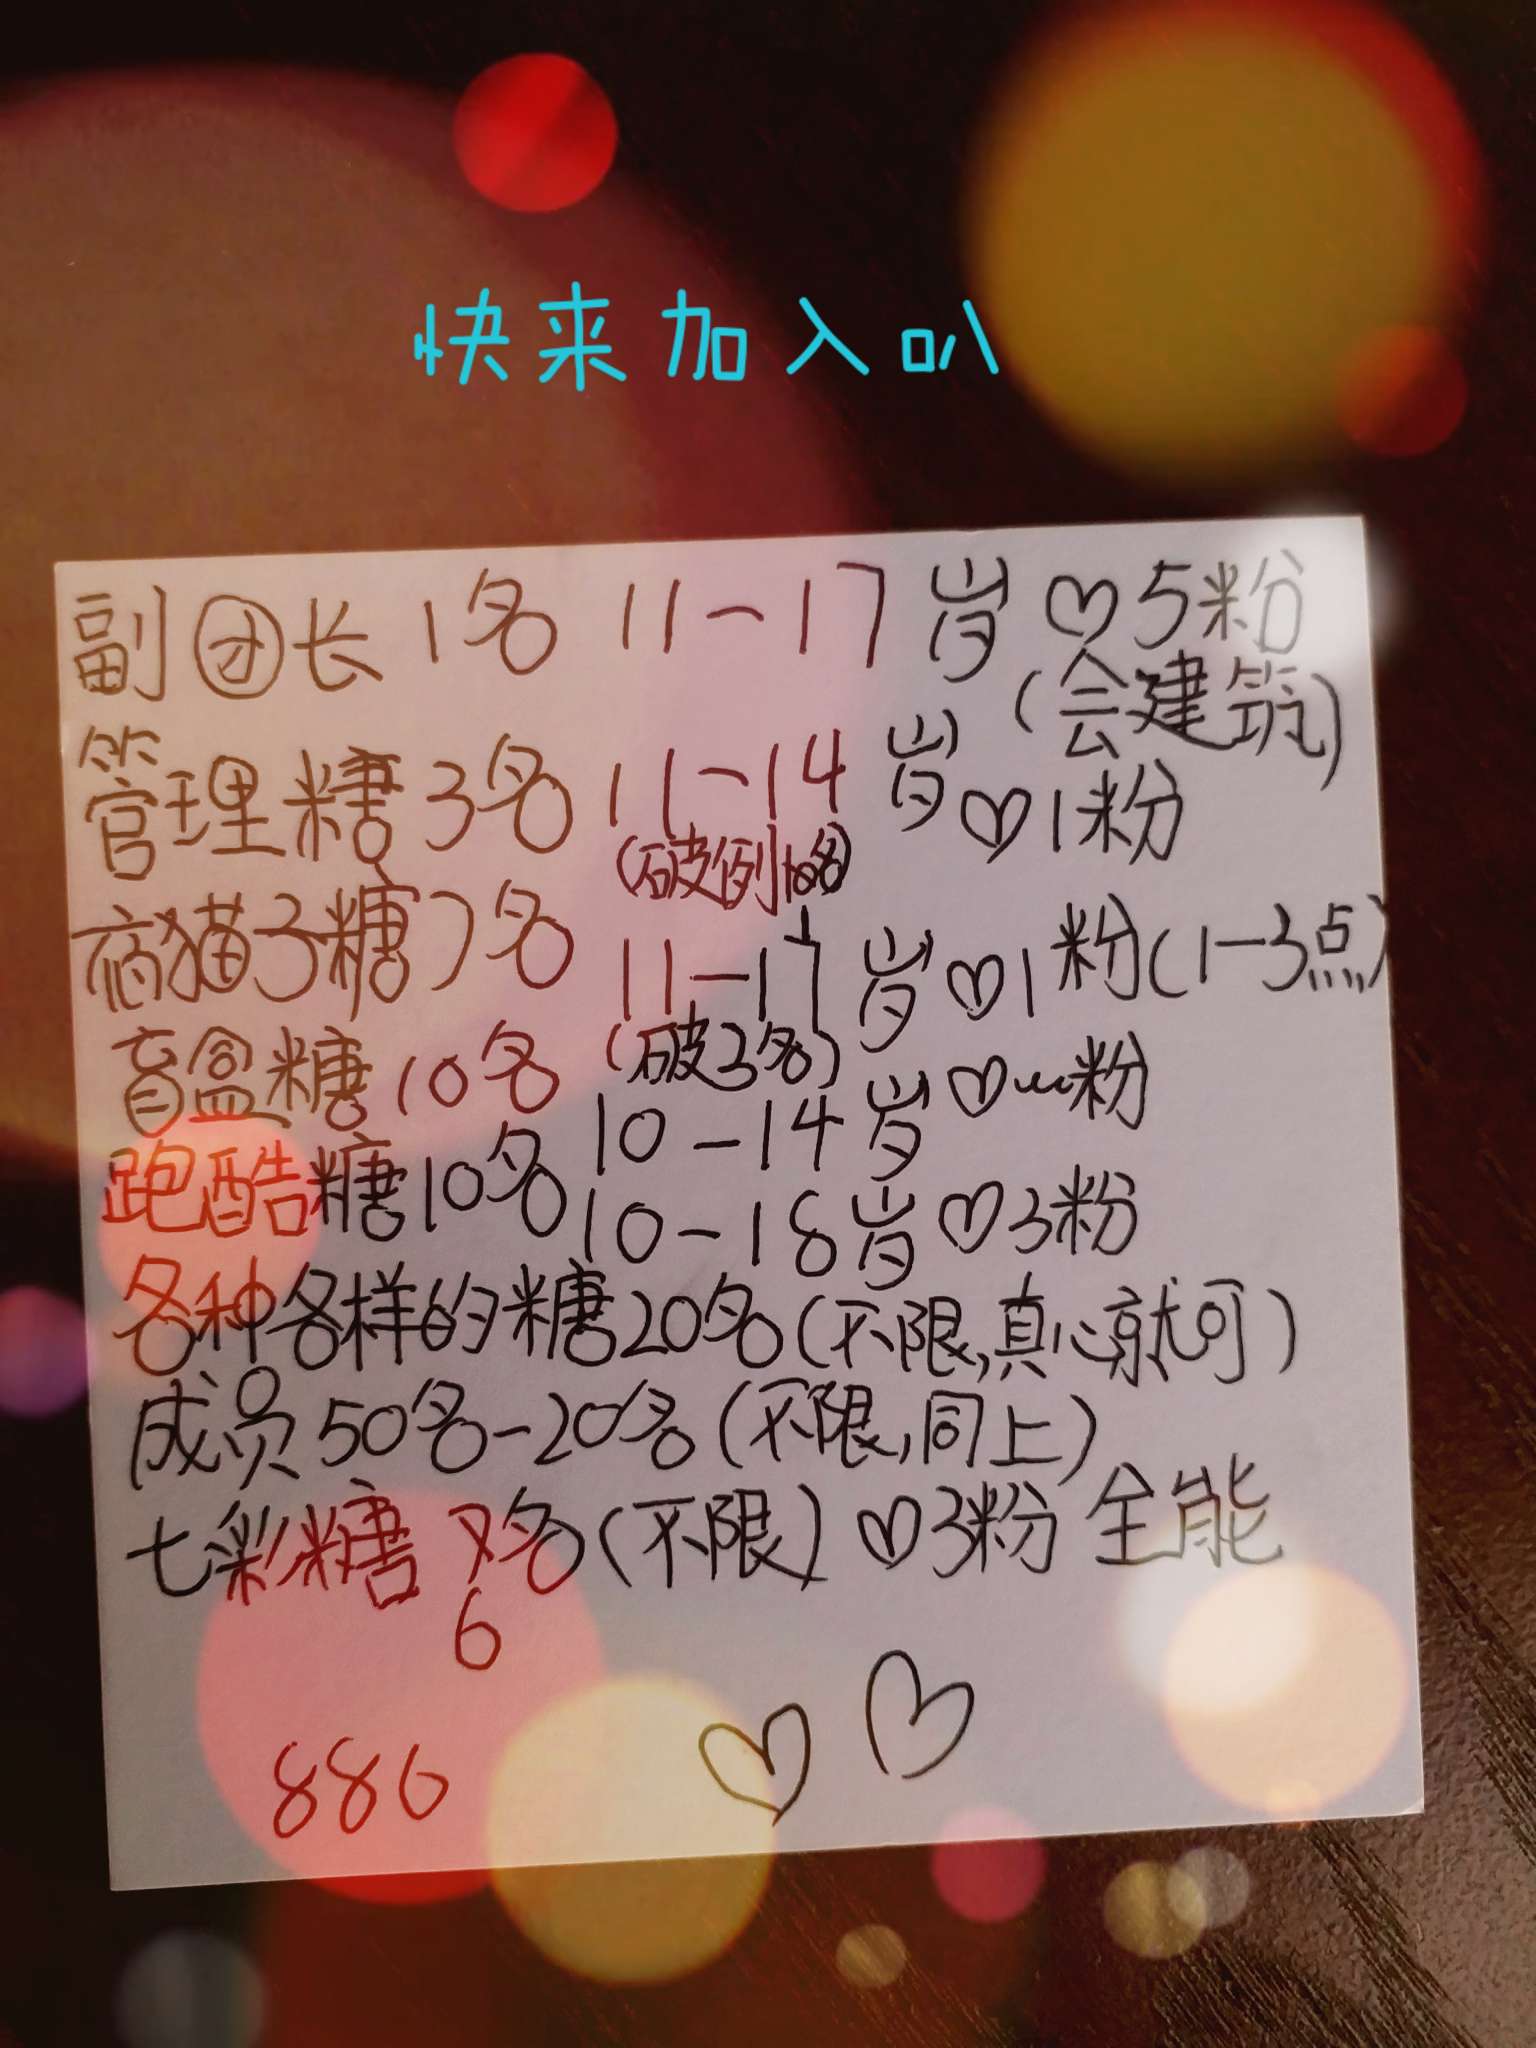 快来加入叭
副团长1名 11-17岁♡5粉
(会建筑)
管理糖3名 11-14岁♡1粉
(破例10名)
夜猫子糖7名 11-17岁♡1粉(1-3点)
(破3名)
盲盒糖10名 10-14岁♡粉
跑酷糖10名 10-18岁♡3粉
各种各样的糖20名(不限,真心就可)
成员50名-20名(不限,同上)
七彩糖 名(不限)♡3粉 全能
6
886